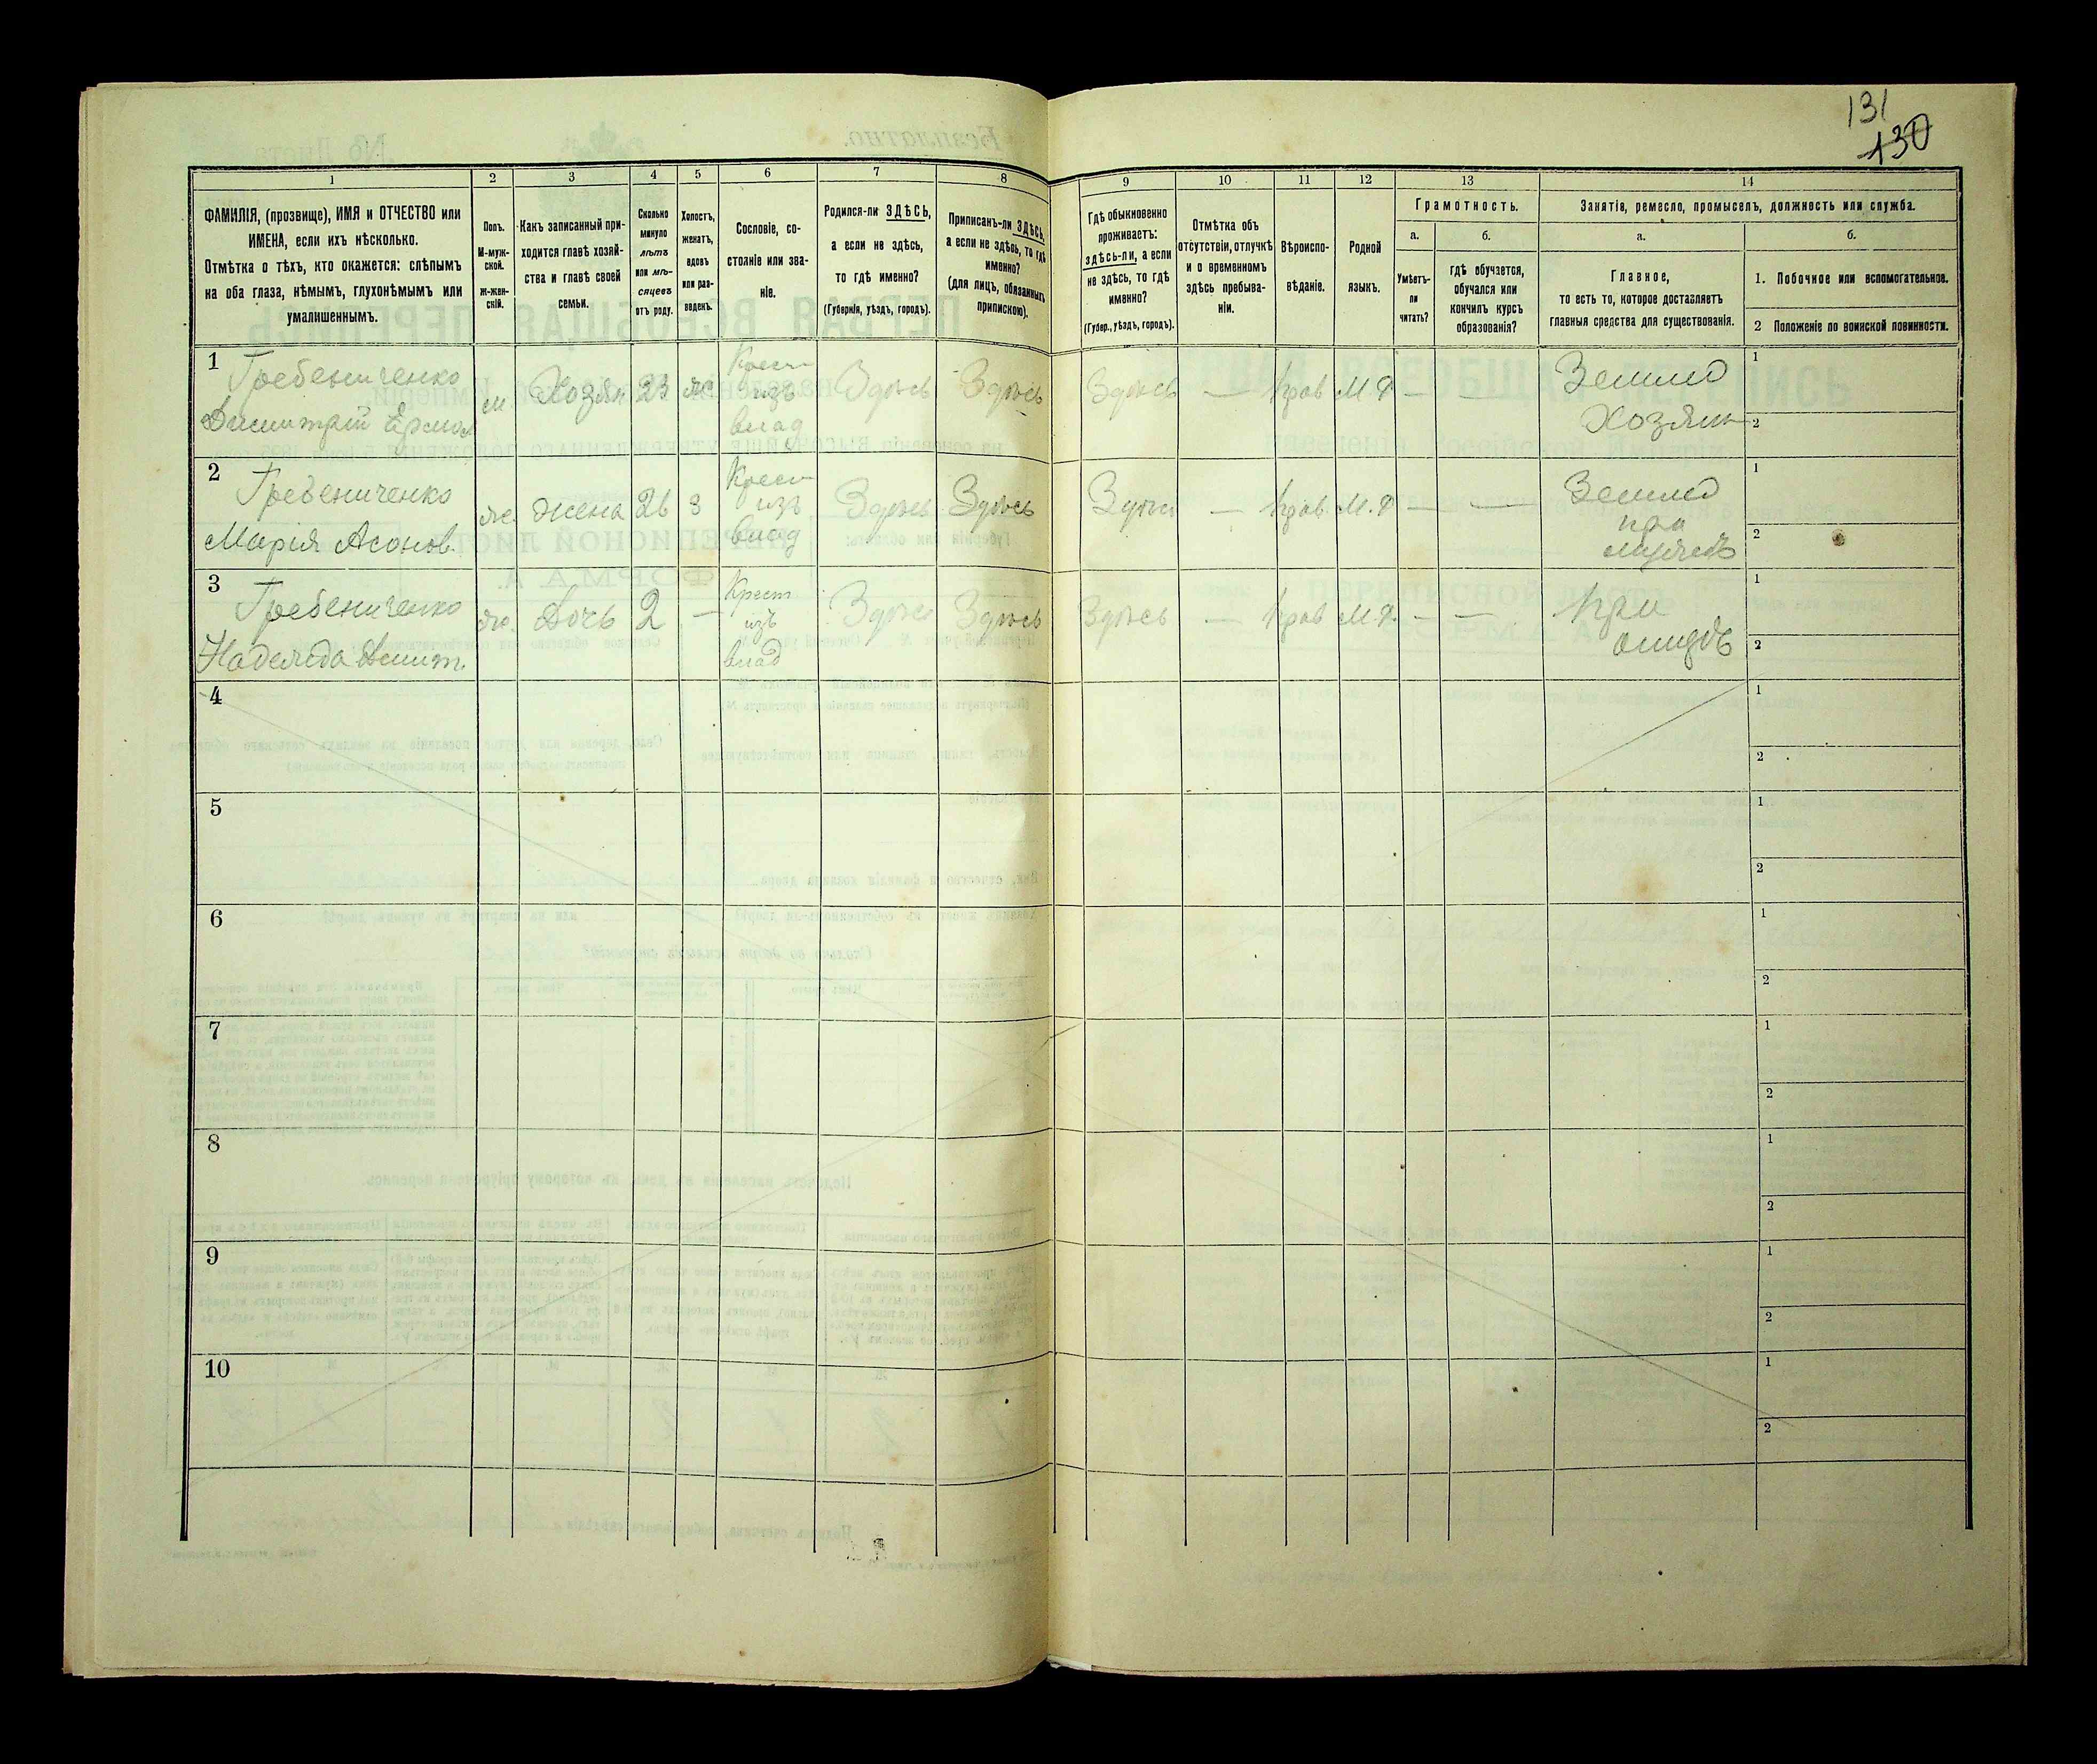 131
130
1
2
3
4
5
6
7
8
9
10
11
12
13
14
ФАМИЛІЯ, (прозвище), ИМЯ и ОТЧЕСТВО или
ИМЕНА, если ихъ нѣсколько.
Отмѣтка о тѣхъ, кто окажется: слѣпымъ
на оба глаза, нѣмымъ, глухонѣмымъ или
умалишеннымъ.
Полъ.
М-муж-
ской.
Ж-жен-
скій.
Какъ записанный при-
ходится главѣ хозяй-
ства и главѣ своей
семьи.
Сколько
минуло
лѣтъ
или мѣ-
сяцевъ
отъ роду.
Холостъ,
женатъ,
вдовъ
или раз-
веденъ.
Сословіе, со-
стояніе или зва-
ніе.
Родился-ли ЗДѢСЬ,
а если не здѣсь,
то гдѣ именно?
(Губернія, уѣздъ, городъ).
Приписанъ-ли ЗДѢСЬ,
а если не здѣсь, то гдѣ
именно?
(для лицъ, обязанныхъ
припискою).
Гдѣ обыкновенно
проживаетъ:
здѣсь-ли, а если
не здѣсь, то гдѣ
именно?
(Губер., уѣздъ, городъ).
Отмѣтка объ
отсутствіи, отлучкѣ
и о временномъ
здѣсь пребыва-
ніи.
Вѣроиспо-
вѣданіе.
Родной
языкъ.
Грамотность.
а.
Умѣетъ-
ли
читать?
б.
гдѣ обучается,
обучался или
кончилъ курсъ
образованія?
Занятіе, ремесло, промыселъ, должность или служба.
а.
Главное,
то есть то, которое доставляетъ
главныя средства для существованія.
б.
1. Побочное или вспомогательное.
2 Положеніе по воинской повинности.
1 Гребениченко
Димитрій Ермол
м Хозяин 23 ж Крест изъ влад Здѣсь Здѣсь Здѣсь — Прав М.Р — — Землед Хозяин 1 2
2 Гребениченко
Марія Асонов.
ж. Жена 26 З Крест изъ влад Здѣсь Здѣсь Здѣсь — Прав. М.Р — — Землед при мужѣ 1 2
3 Гребениченко
Надежда Димит.
ж. Дочь 2 — Крест изъ влад Здѣсь Здѣсь Здѣсь — Прав М.Р. — — При отцѣ 1 2
4 1 2
5 1 2
6 1 2
7 1 2
8 1 2
9 1 2
10 1 2